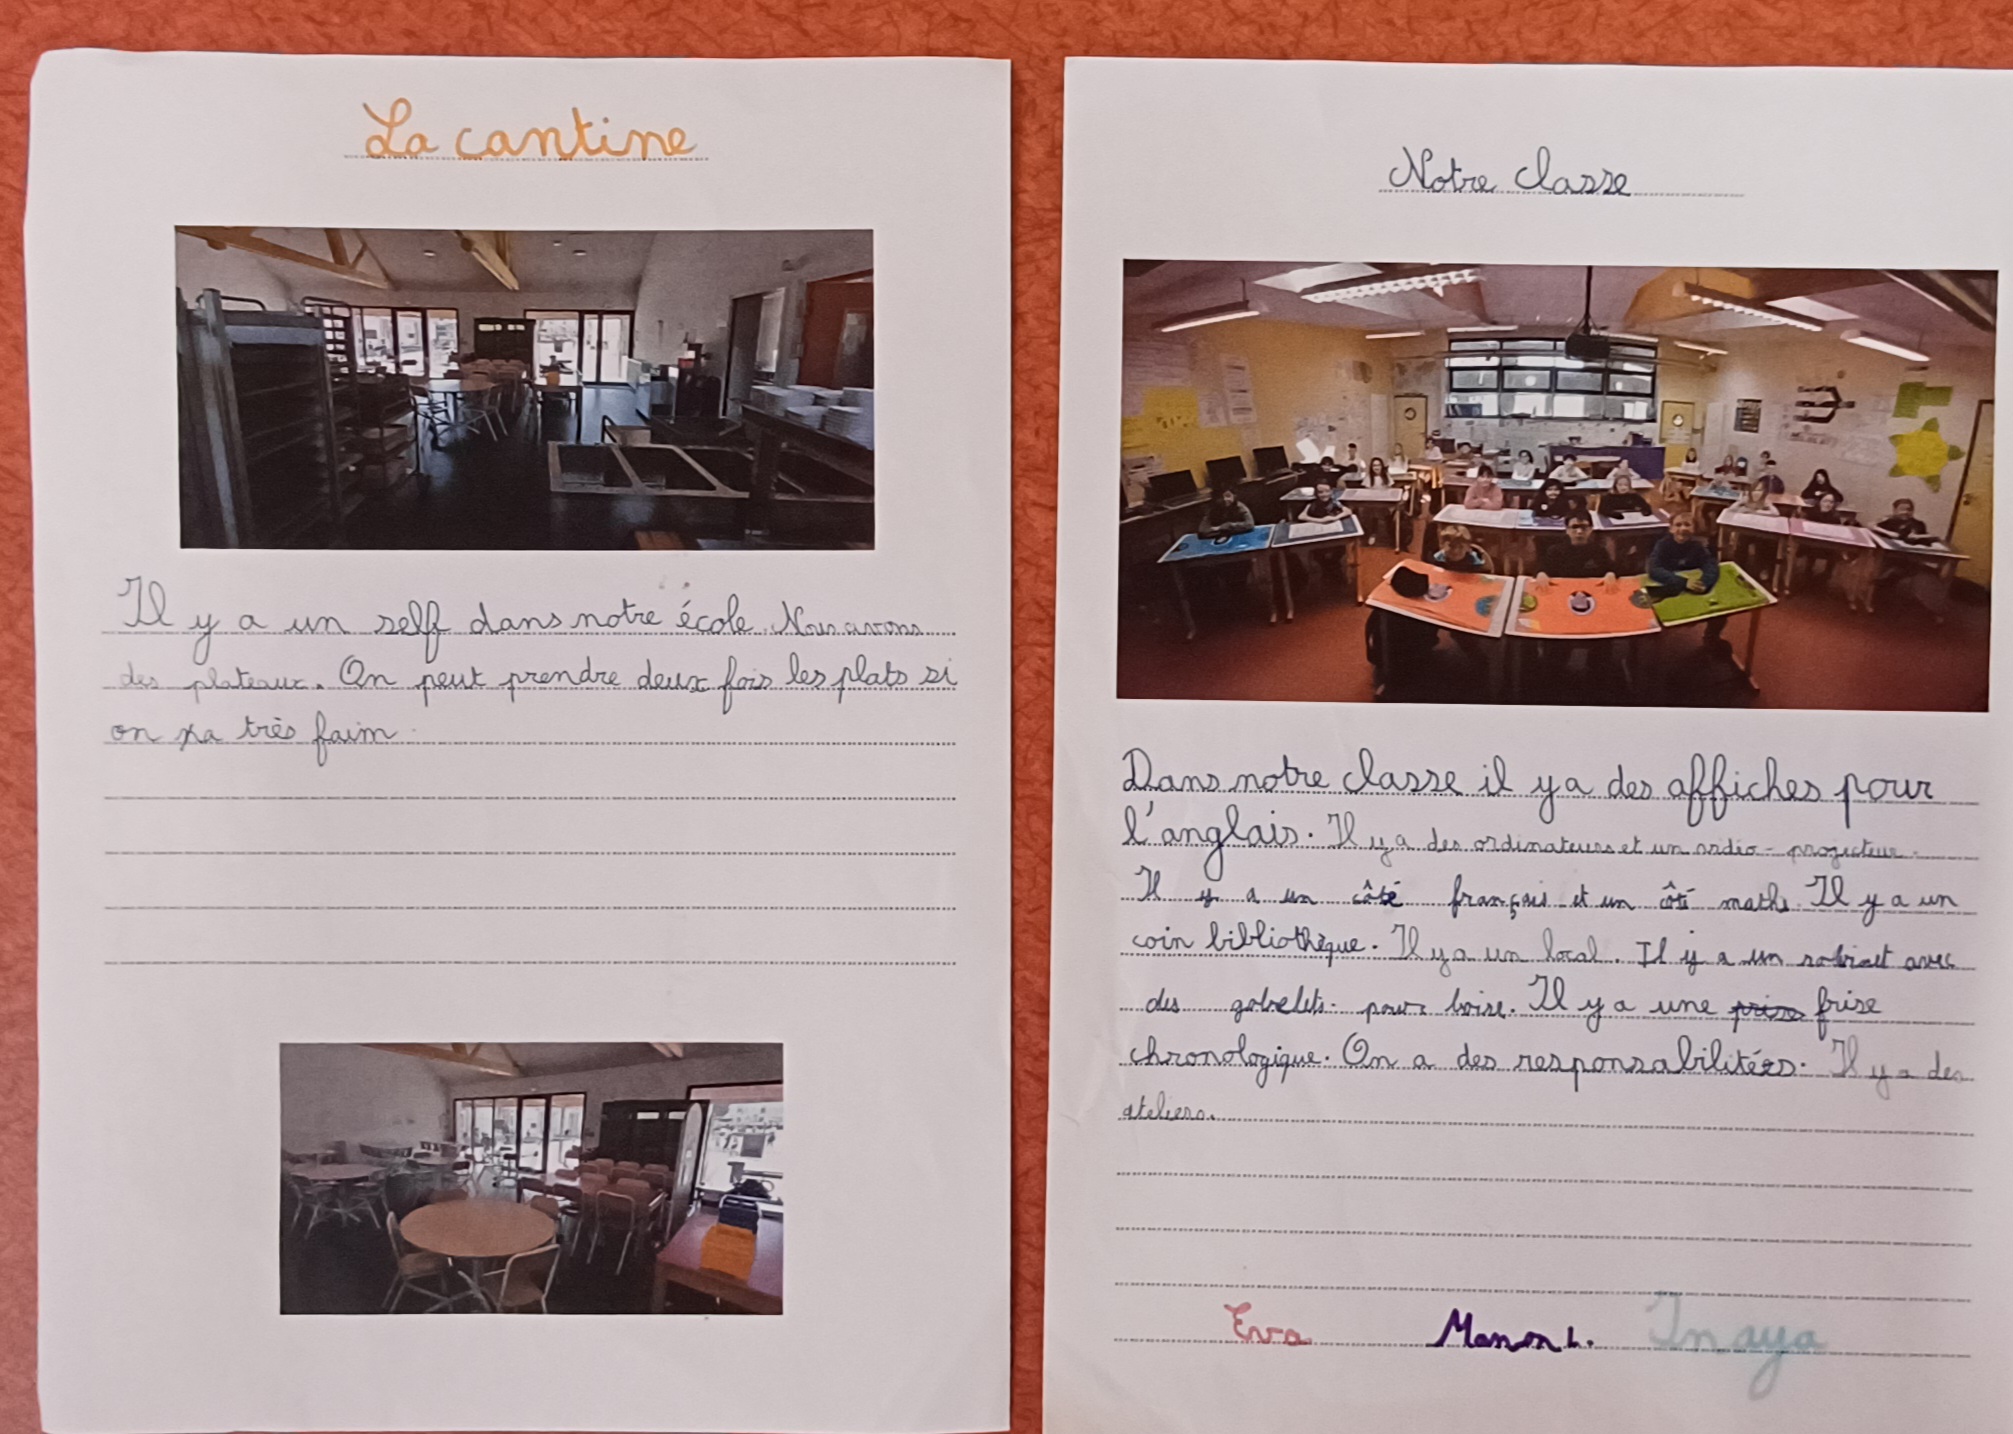 La cantine
Il y a un self dans notre école. Nous avons
des plateaux. On peut prendre deux fois les plats si
on a très faim.
Notre classe
Dans notre classe il y a des affiches pour
l'anglais. Il y a des ordinateurs et un vidio-projecteur.
Il y a un côté français et un côté maths. Il y a un
coin bibliothèque. Il y a un local. Il y a un robinet avec
des gobelets pour boire. Il y a une frise
chronologique. On a des responsabilités. Il y a des
ateliers.
Eva Manon L. Inaya